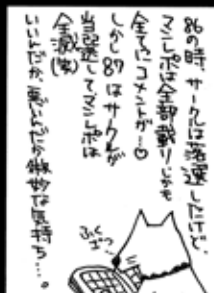 86の時、サークルは落選したけど、
マンレポは全部載りしかも
全てにコメントが…♡
しかし87はサークルが
当選してマンレポは
全滅(笑)
いいんだか、悪いんだか微妙な気持ち…。
ふくざつ